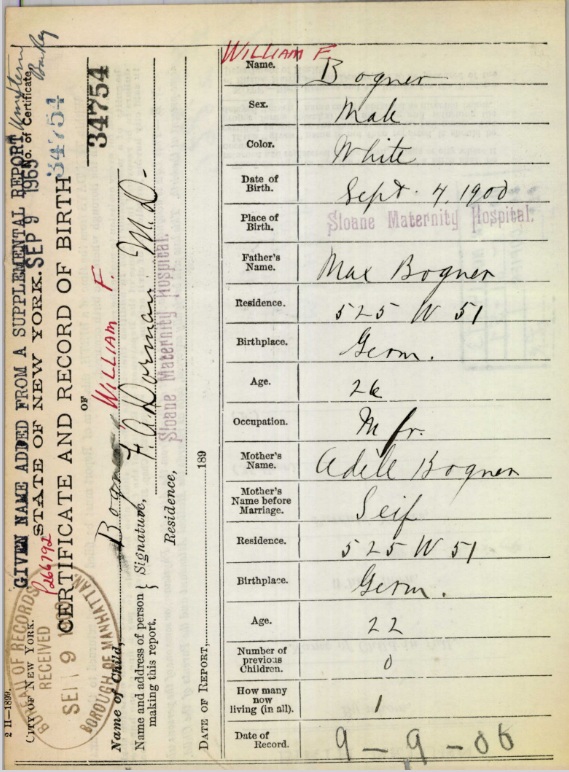 2 II—1899.
GIVEN NAME ADDED FROM A SUPPLEMENTAL REPORT
CITY OF NEW YORK. STATE OF NEW YORK. SEP 9 1965 No. of Certificate,
P266792
34754
CERTIFICATE AND RECORD OF BIRTH
OF
34754
BUREAU OF RECORDS
RECEIVED
SEP 9
BOROUGH OF MANHATTAN
Name of Child, Bogner WILLIAM F.
Name and address of person making this report. } Signature, F. A. Dorman M. D.
Sloane Maternity Hospital.
Residence,
DATE OF REPORT, 189
WILLIAM F.
Name. Bogner
Sex. Male
Color. White
Date of Birth. Sept. 4, 1900
Place of Birth. Sloane Maternity Hospital.
Father's Name. Max Bogner
Residence. 525 W 51
Birthplace. Germ.
Age. 26
Occupation. Mfr.
Mother's Name. Adele Bogner
Mother's Name before Marriage. Seif
Residence. 525 W 51
Birthplace. Germ.
Age. 22
Number of previous Children. 0
How many now living (in all). 1
Date of Record. 9-9-00